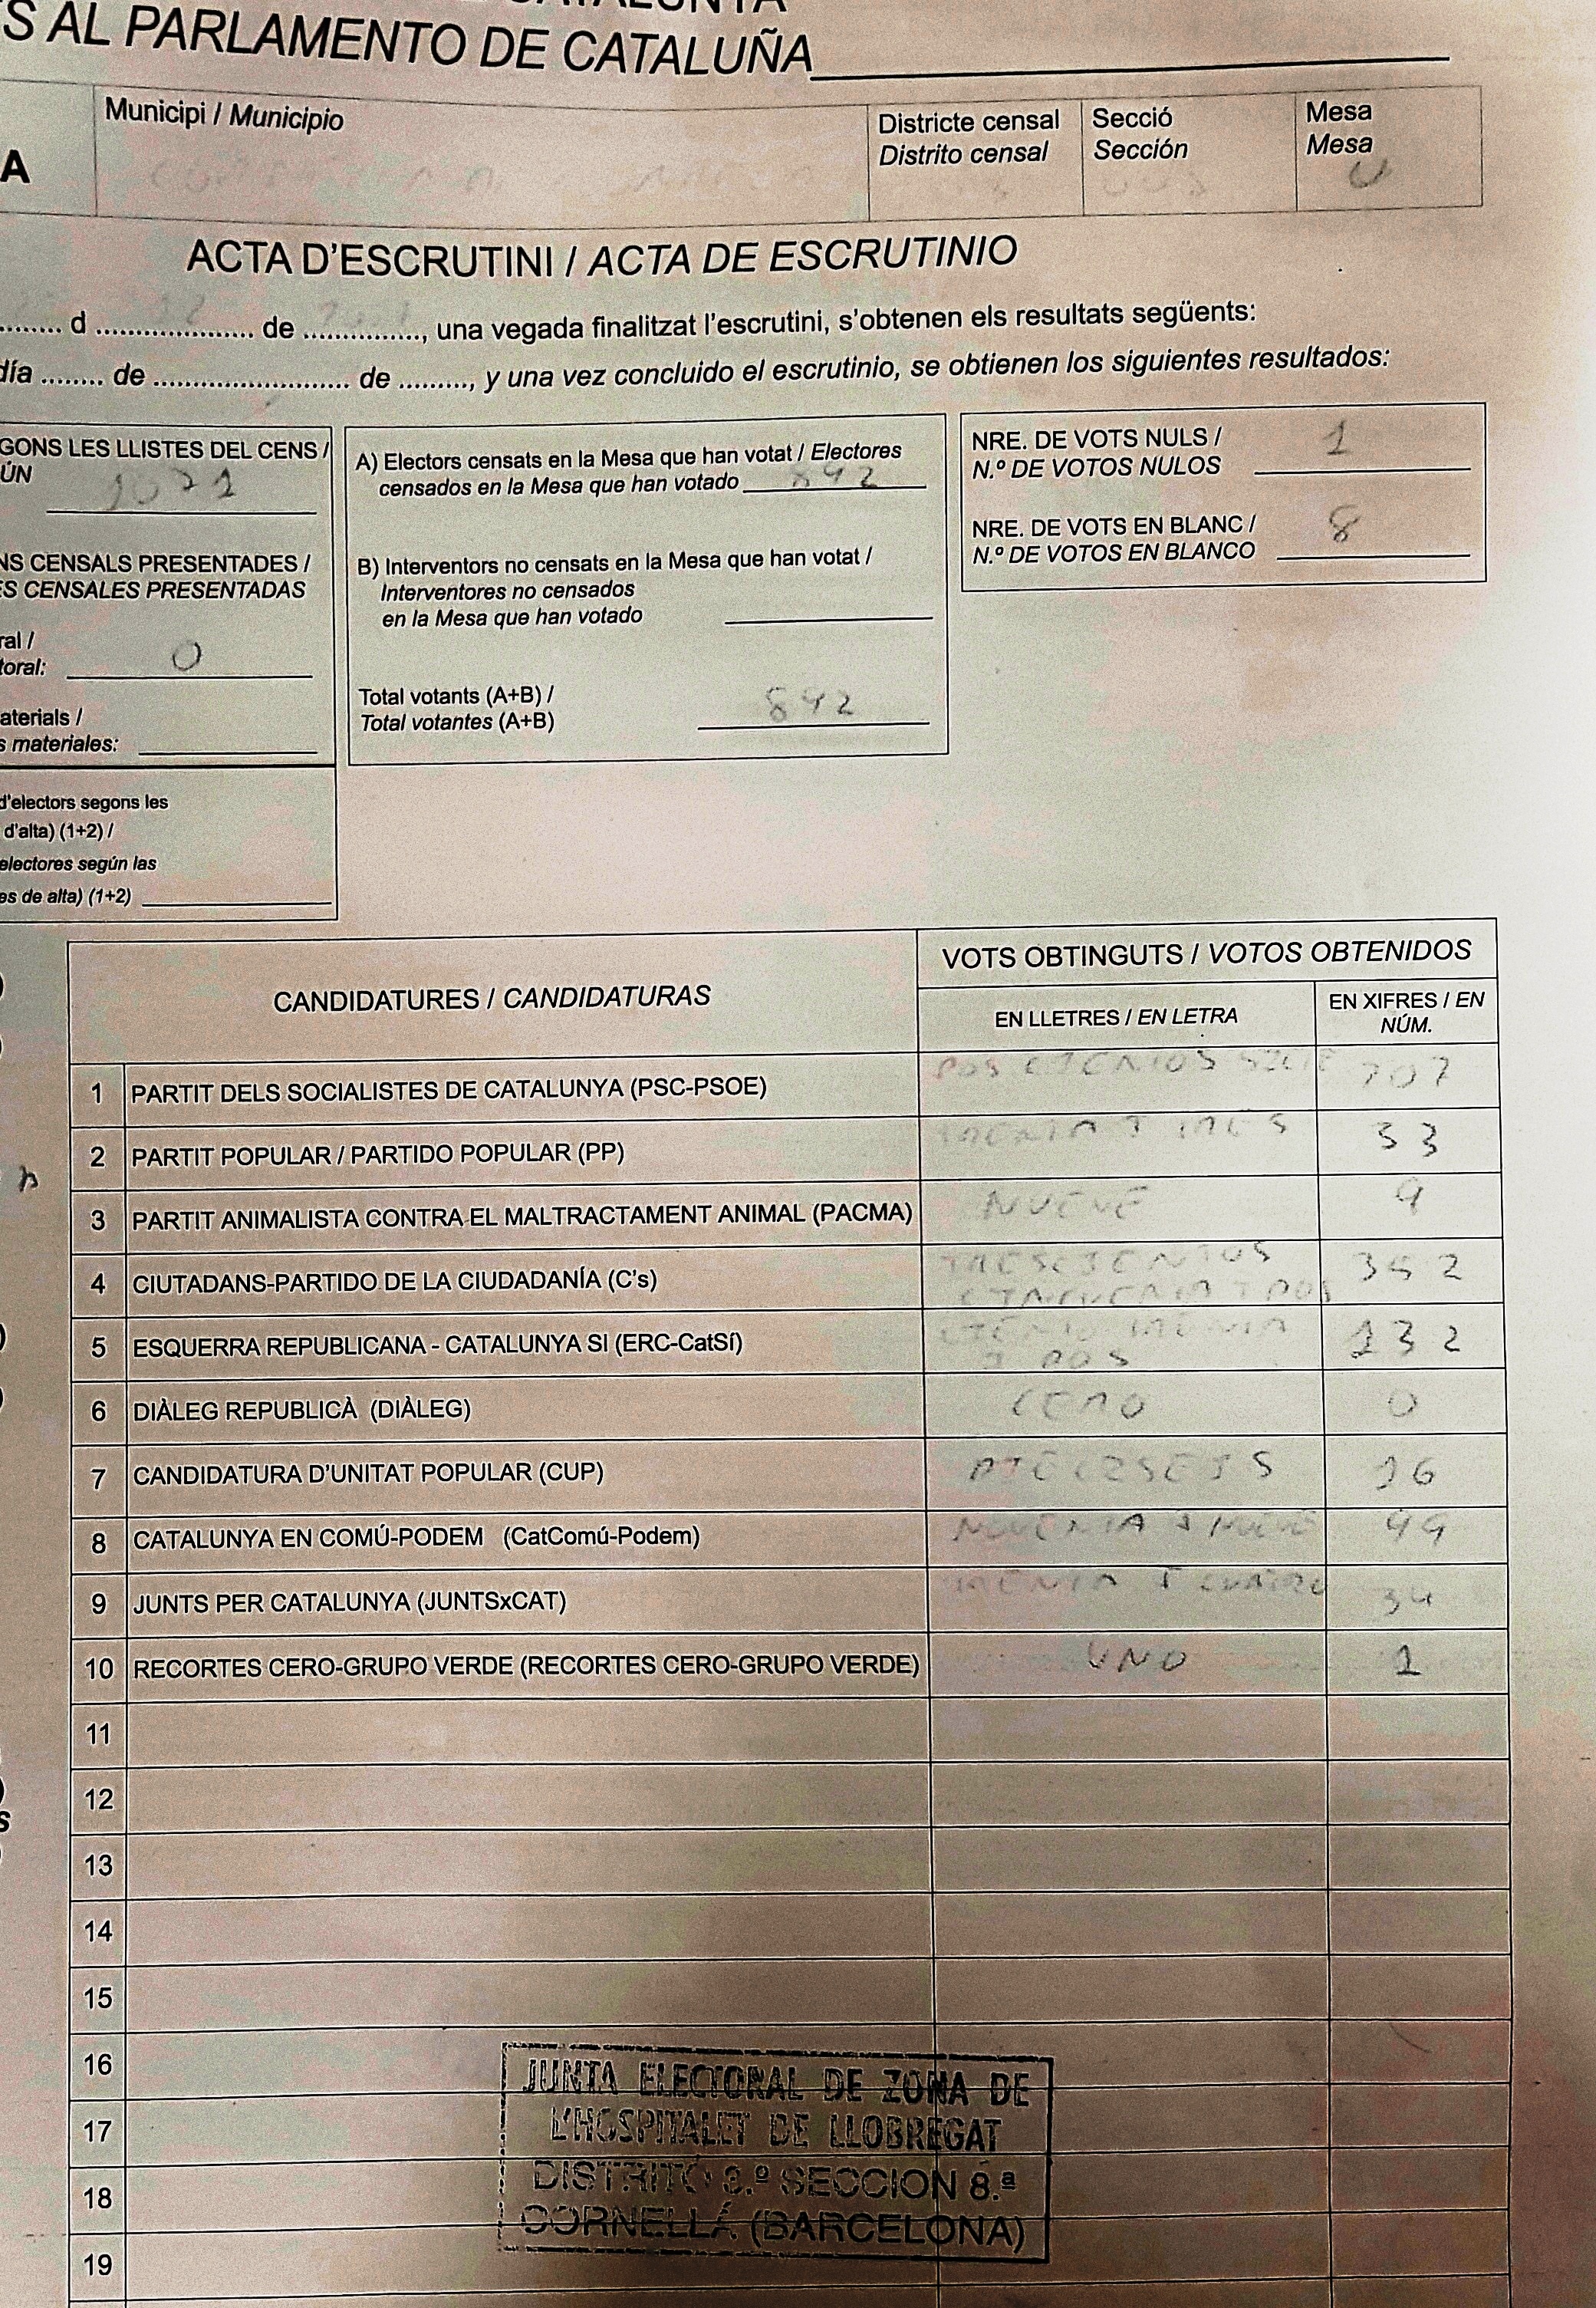 CATALUNYA
S AL PARLAMENTO DE CATALUÑA
A
Municipi / Municipio
Districte censal
Distrito censal
Secció
Sección
Mesa
Mesa
U
ACTA D'ESCRUTINI / ACTA DE ESCRUTINIO
........ d .................... de ..............., una vegada finalitzat l'escrutini, s'obtenen els resultats següents:
día ........ de ......................... de ........., y una vez concluido el escrutinio, se obtienen los siguientes resultados:
GONS LES LLISTES DEL CENS /
ÚN
NS CENSALS PRESENTADES /
S CENSALES PRESENTADAS
ral /
toral: 0
aterials /
s materiales:
d'electors segons les
d'alta) (1+2) /
electores según las
es de alta) (1+2)
A) Electors censats en la Mesa que han votat / Electores
censados en la Mesa que han votado 892
B) Interventors no censats en la Mesa que han votat /
Interventores no censados
en la Mesa que han votado
Total votants (A+B) /
Total votantes (A+B) 892
NRE. DE VOTS NULS /
N.º DE VOTOS NULOS 1
NRE. DE VOTS EN BLANC /
N.º DE VOTOS EN BLANCO 8
CANDIDATURES / CANDIDATURAS
VOTS OBTINGUTS / VOTOS OBTENIDOS
EN LLETRES / EN LETRA
EN XIFRES / EN
NÚM.
1 PARTIT DELS SOCIALISTES DE CATALUNYA (PSC-PSOE) DOSCIENTOS SIETE 207
2 PARTIT POPULAR / PARTIDO POPULAR (PP) TRENTA I TRES 33
3 PARTIT ANIMALISTA CONTRA EL MALTRACTAMENT ANIMAL (PACMA) NUEVE 9
4 CIUTADANS-PARTIDO DE LA CIUDADANÍA (C's) TRESCIENTOS 352
CINCUENTA I DOS
5 ESQUERRA REPUBLICANA - CATALUNYA SI (ERC-CatSí) CIENTO TRENTA 132
I DOS
6 DIÀLEG REPUBLICÀ (DIÀLEG) CERO 0
7 CANDIDATURA D'UNITAT POPULAR (CUP) DIECISEIS 16
8 CATALUNYA EN COMÚ-PODEM (CatComú-Podem) NOVENTA I NUEVE 99
9 JUNTS PER CATALUNYA (JUNTSxCAT) TRENTA I CUATRO 34
10 RECORTES CERO-GRUPO VERDE (RECORTES CERO-GRUPO VERDE) UNO 1
11
12
13
14
15
16
17
18
19
JUNTA ELECTORAL DE ZONA DE
L'HOSPITALET DE LLOBREGAT
DISTRITO 3.º SECCION 8.ª
CORNELLÁ (BARCELONA)